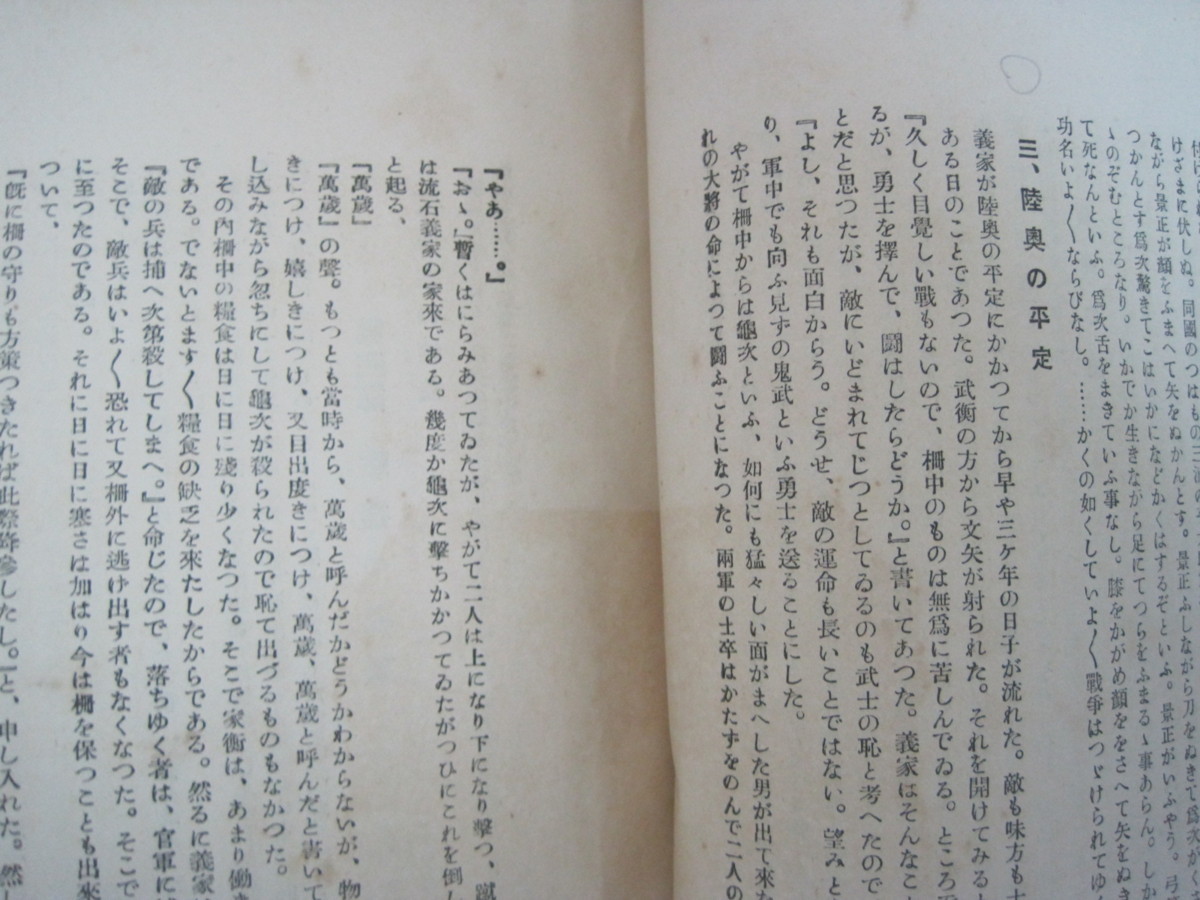 けざまに伏しぬ。同國のつはもの三
ながら景正が顔をふまへて矢をぬかんとす。景正ふしながら刀をぬきて爲次が
つかんとす爲次驚きてこはいかになどかくはするぞといふ。景正がいふやう。弓
ゝのぞむところなり。いかでか生きながら足にてつらをふまるゝ事あらん。しか
て死なんといふ。爲次舌をまきていふ事なし。膝をかがめ顔ををさへて矢をぬき
功名いよ〳〵ならびなし。……かくの如くしていよ〳〵戰爭はつゞけられてゆく
三、陸奧の平定
義家が陸奥の平定にかかつてから早や三ケ年の日子が流れた。敵も味方も
ある日のことであつた。武衡の方から文矢が射られた。それを開けてみると
『久しく目覺しい戰もないので、柵中のものは無爲に苦しんでゐる。ところ
るが、勇士を擇んで、鬪はしたらどうか。』と書いてあつた。義家はそんなこ
とだと思つたが、敵にいどまれてじつとしてゐるのも武士の恥と考へたので
『よし、それも面白からう。どうせ、敵の運命も長いことではない。望みと
り、軍中でも向ふ見ずの鬼武といふ勇士を送ることにした。
やがて柵中からは龜次といふ、如何にも猛々しい面がまへした男が出て來た
れの大將の命によつて鬪ふことになつた。兩軍の士卒はかたずをのんで二人の
『やあ……。』
『おゝ。』暫くはにらみあつてゐたが、やがて二人は上になり下になり擊つ、蹴
は流石義家の家來である。幾度か龜次に擊ちかかつてゐたがつひにこれを倒し
と起る、
『萬歲』
『萬歲』の聲。もつとも當時から、萬歲と呼んだかどうかわからないが、物
きにつけ、嬉しきにつけ、又目出度きにつけ、萬歲、萬歲と呼んだと書いて
し込みながら忽ちにして龜次が殺られたので恥て出づるものもなかつた。
その內柵中の糧食は日に日に殘り少くなつた。そこで家衡は、あまり働き
である。でないとます〳〵糧食の缺乏を來たしたからである。然るに義家は
『敵の兵は捕へ次第殺してしまへ。』と命じたので、落ちゆく者は、官軍に
そこで、敵兵はいよ〳〵恐れて又柵外に逃げ出す者もなくなつた。そこで
に至つたのである。それに日に日に寒さは加はり今は柵を保つことも出來
ついて、
『既に柵の守りも方策つきたれば此際降參したし。』と、申し入れた。然し